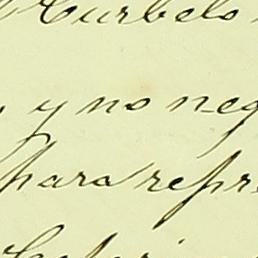 Curbelo
y no neg
para repr